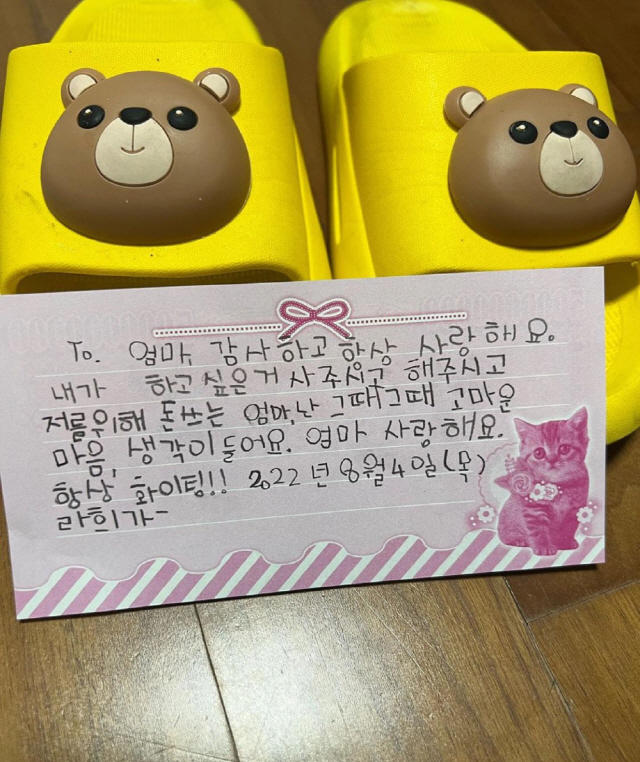 To. 엄마 감사하고 항상 사랑해요.
내가 하고싶은거 사주시구 해주시고
저를위해 돈쓰는 엄마, 난 그때그때 고마운
마음, 생각이들어요. 엄마 사랑해요.
항상 화이팅!! 2022년 8월 4일(목)
라희가-